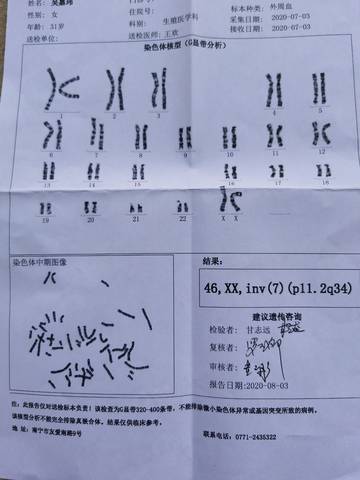 姓名：吴嘉玮
性别：女
年龄：31岁
送检单位：
住院号：
科别： 生殖医学科
送检医师：王欢
标本种类：外周血
采集日期：2020-07-03
接收日期：2020-07-03
染色体核型（G显带分析）
1 2 3 4 5
6 7 8 9 10 11 12
13 14 15 16 17 18
19 20 21 22 X X
染色体中期图像
结果：
46,XX,inv(7)(p11.2q34)
建议遗传咨询
检验者：甘志远
复核者：
审核者：
报告日期:2020-08-03
注：此报告仅对送检标本负责！该检查为G显带320-400条带，不能排除微小染色体异常或基因突变所致的病例。
该核型分析不能完全排除真嵌合体。结果仅供临床参考。
地 址：南宁市友爱南路9号
联系电话：0771-2435322